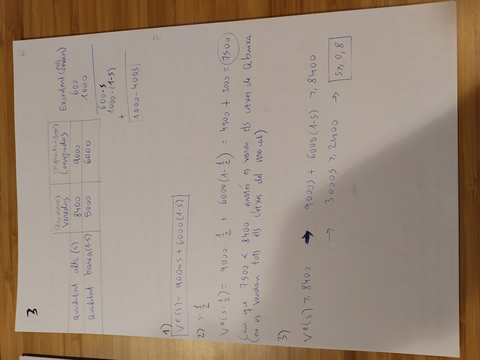 3
(Venedors) venedas (Compradors) (compradas) Excedent (Pos
qualitat alta (s) 8400 9000 600
qualitat baixa (1-s) 5000 6000 1000
600·s
1000·(1-s)
+
1000-400s
1) V^e(s) = 9000s + 6000(1-s)
2) s = 1/2
V^e(s=1/2) = 9000·1/2 + 6000(1-1/2) = 4500 + 3000 = 7500
Com que 7500 < 8400 només es venen els cotxes de q baixa
(no es vendran tots els cotxes del mercat)
3)
V^e(s) ≥ 8400 → 9000s + 6000(1-s) ≥ 8400
→ 3000s ≥ 2400 → s ≥ 0,8